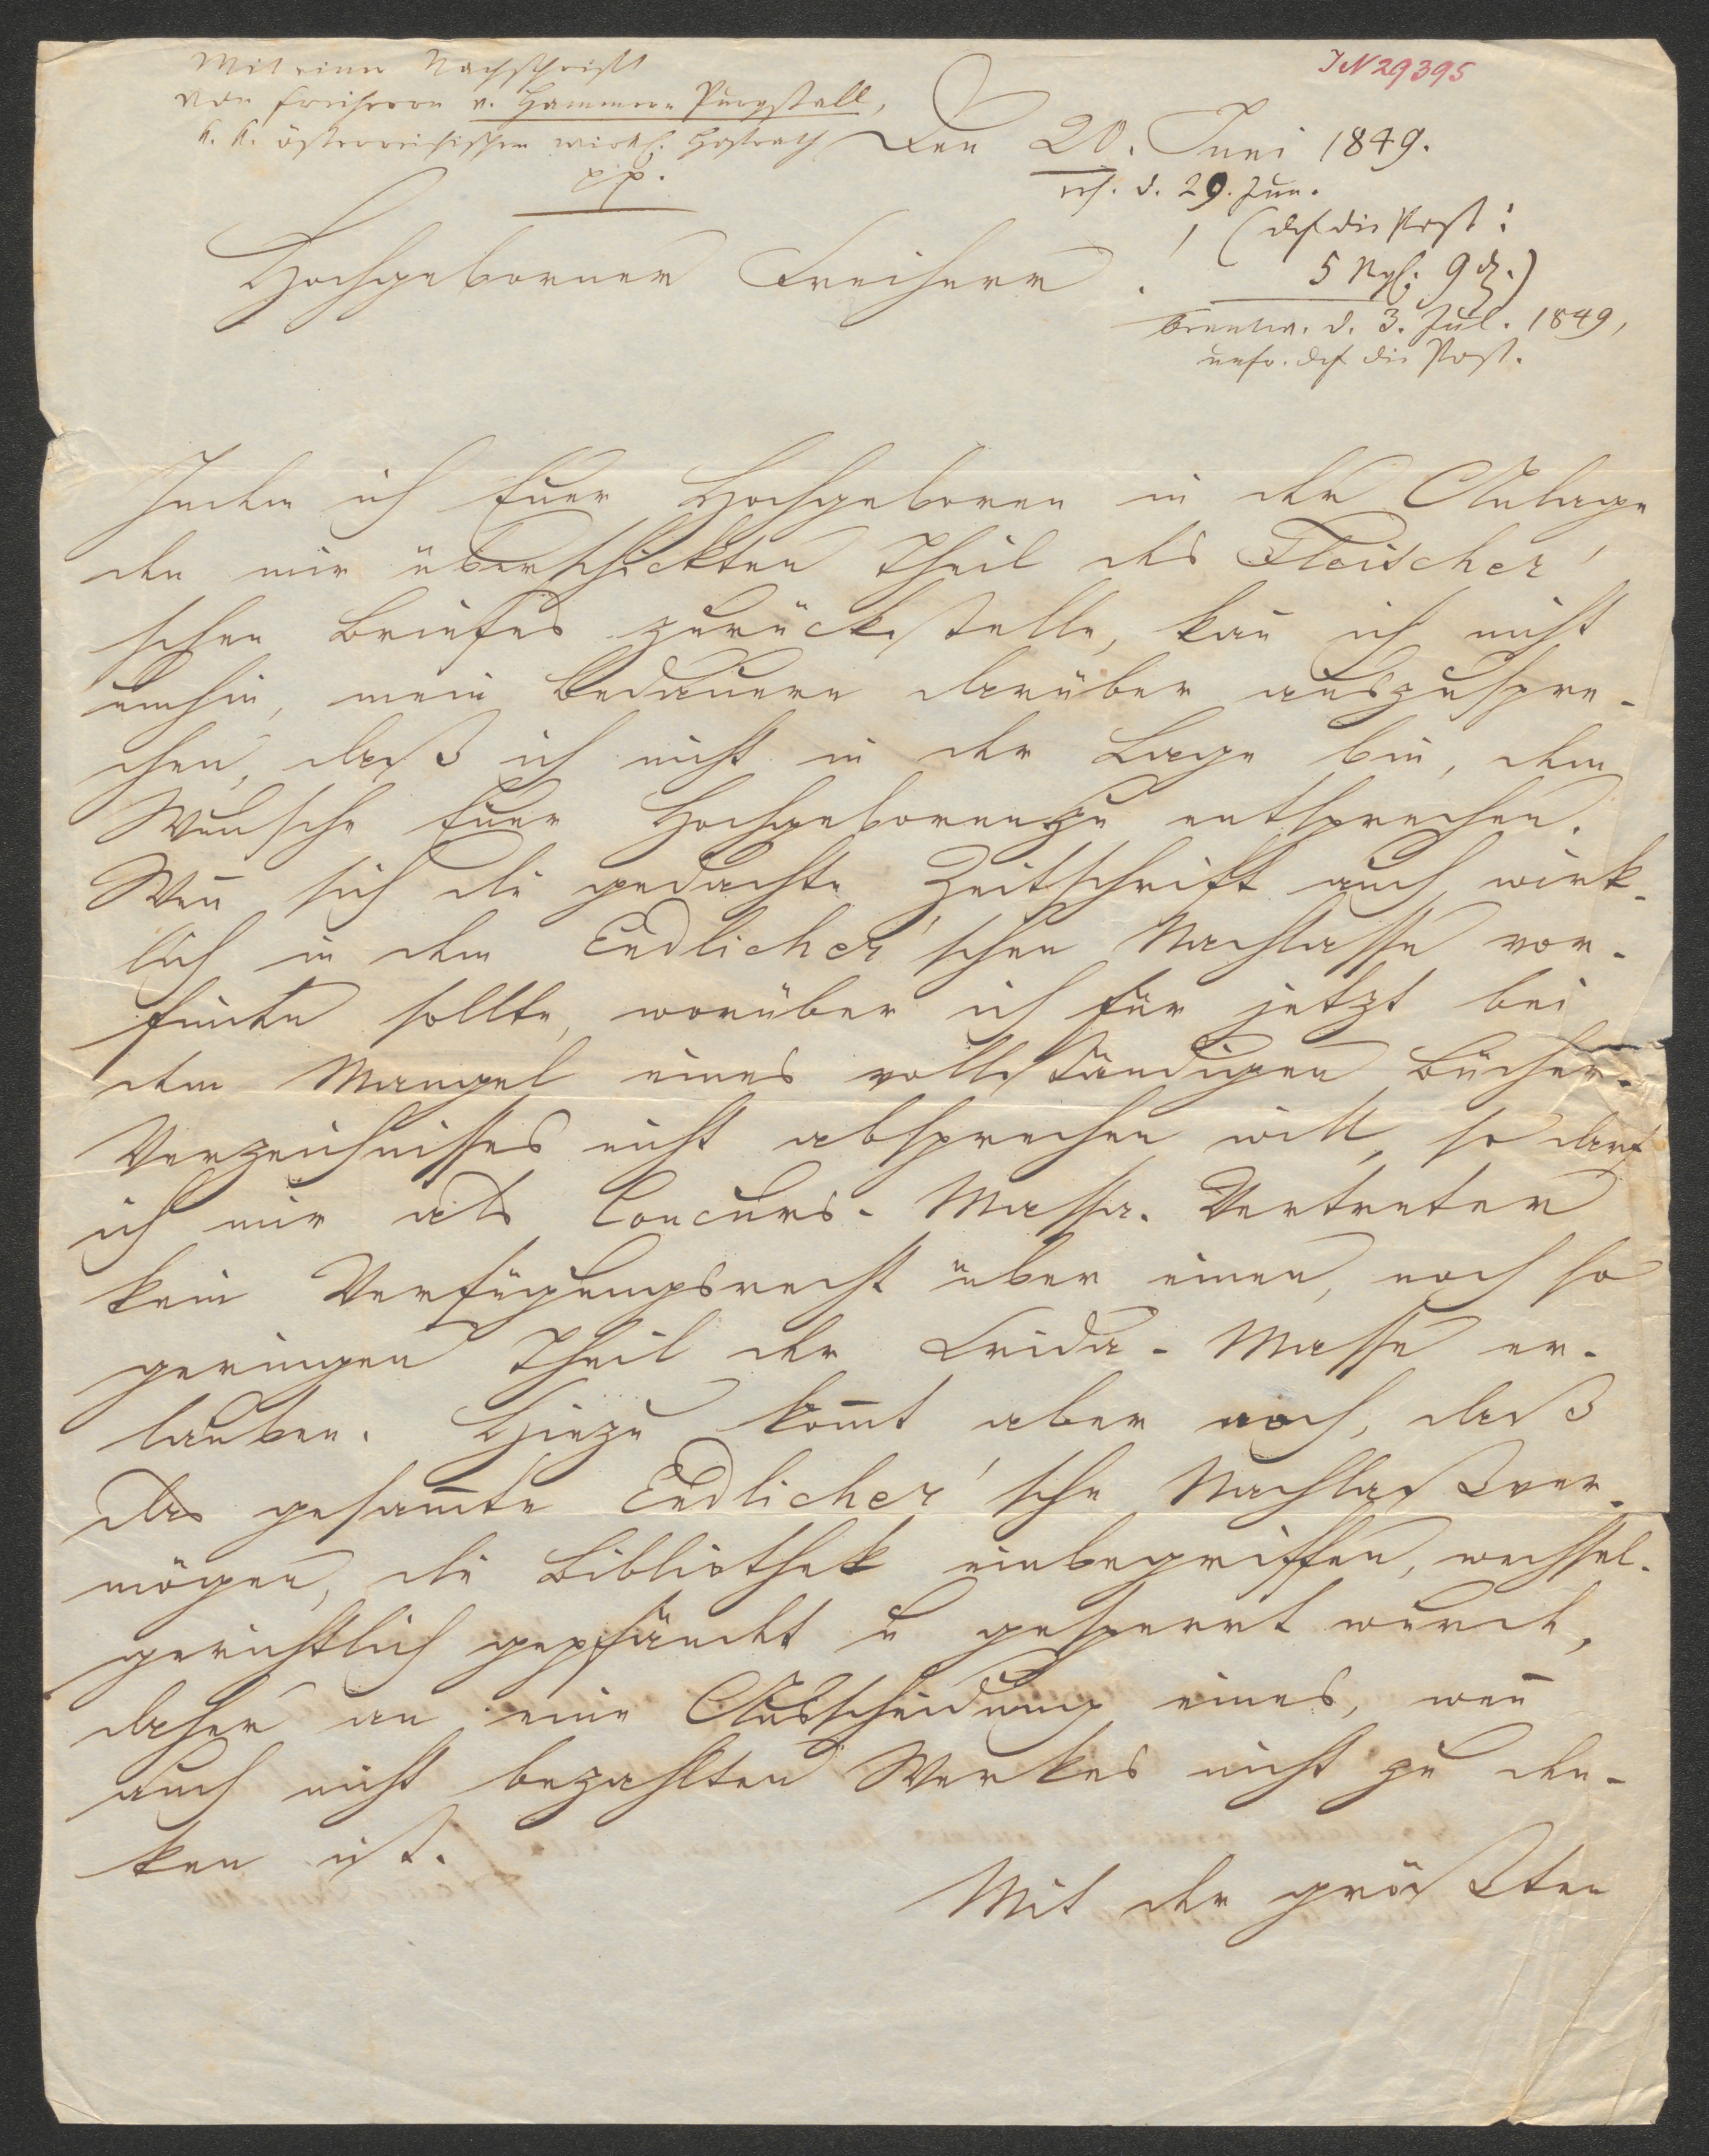 Mit einer Nachschrift
von Freiherrn v. Hammer-Purgstall,
k. k. österreichischen wirkl. Hofrath
pp.
IN 29395
Den 20. Juni 1849.
erh. d. 29. Jun.
(dch die Post:
5 Ngl. 9 d.)
Hochgeborner Freiherr!
beantw. d. 3. Jul. 1849,
unfr. dch die Post.
Indem ich Euer Hochgeboren in der Anlage
den mir überschickten Theil des Fleischer'
schen Briefes zurückstelle, kan̄ ich nicht
umhin, mein Bedauern darüber auszuspre-
chen, daß ich nicht in der Lage bin, dem
Wunsche Euer Hochgeboren zu entsprechen.
Wen̄ sich die gedachte Zeitschrift auch wirk-
lich in dem Endlicher'schen Nachlasse vor-
finden sollte, worüber ich für jetzt bei
dem Mangel eines vollständigen Bücher-
Verzeichnisses nicht absprechen will, so darf
ich mir als Concurs-Massa-Vertreter
kein Verfügungsrecht über einen, noch so
geringen Theil der Crida-Masse er-
lauben. Hiezu kom̄t aber noch, daß
das gesam̄te Endlicher'sche Nachlaßver-
mögen, die Bibliothek einbegriffen, wechsel-
gerichtlich gepfändet u gesperrt wurde,
daher an eine Ausscheidung eines, wen̄
auch nicht bezahlten Werkes nicht zu den-
ken ist.
Mit der größten